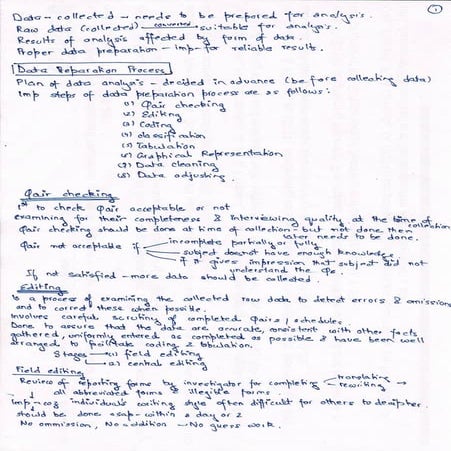 1
Data - collected - needs to be prepared for analysis.
Raw data (collected) converted suitable for analysis.
Results of analysis affected by form of data.
Proper data preparation - imp for reliable results.
Data Preparation Process
Plan of data analysis - decided in advance (before collecting data)
Imp steps of data preparation process are as follows:
(1) Qair checking
(2) Editing
(3) Coding
(4) classification
(5) Tabulation
(6) Graphical Representation
(7) Data cleaning
(8) Data adjusting.
Qair checking
1st to check Qair acceptable or not
examining for their completeness & interviewing quality at the time of collection
Qair checking should be done at time of collection - but not done then later needs to be done.
Qair not acceptable if
incomplete partially or fully
subject does not have enough knowledge
if it gives impression that subject did not
understand the Qs.
If not satisfied - more data should be collected.
Editing
Is a process of examining the collected raw data to detect errors & omissions
and to correct these when possible.
Involves careful scrutiny of completed Qairs / schedules
Done to assure that the data are accurate, consistent with other facts
gathered, uniformly entered as completed as possible & have been well
arranged to facilitate coding & tabulation.
Stages (1) field editing
(2) central editing
Field editing
Review of reporting forms by investigator for completing translating
rewriting
all abbreviated forms & illegible forms.
Imp - coz individual's writing style often difficult for others to decipher
should be done asap - within a day or 2
No ommission, No addition - No guess work.